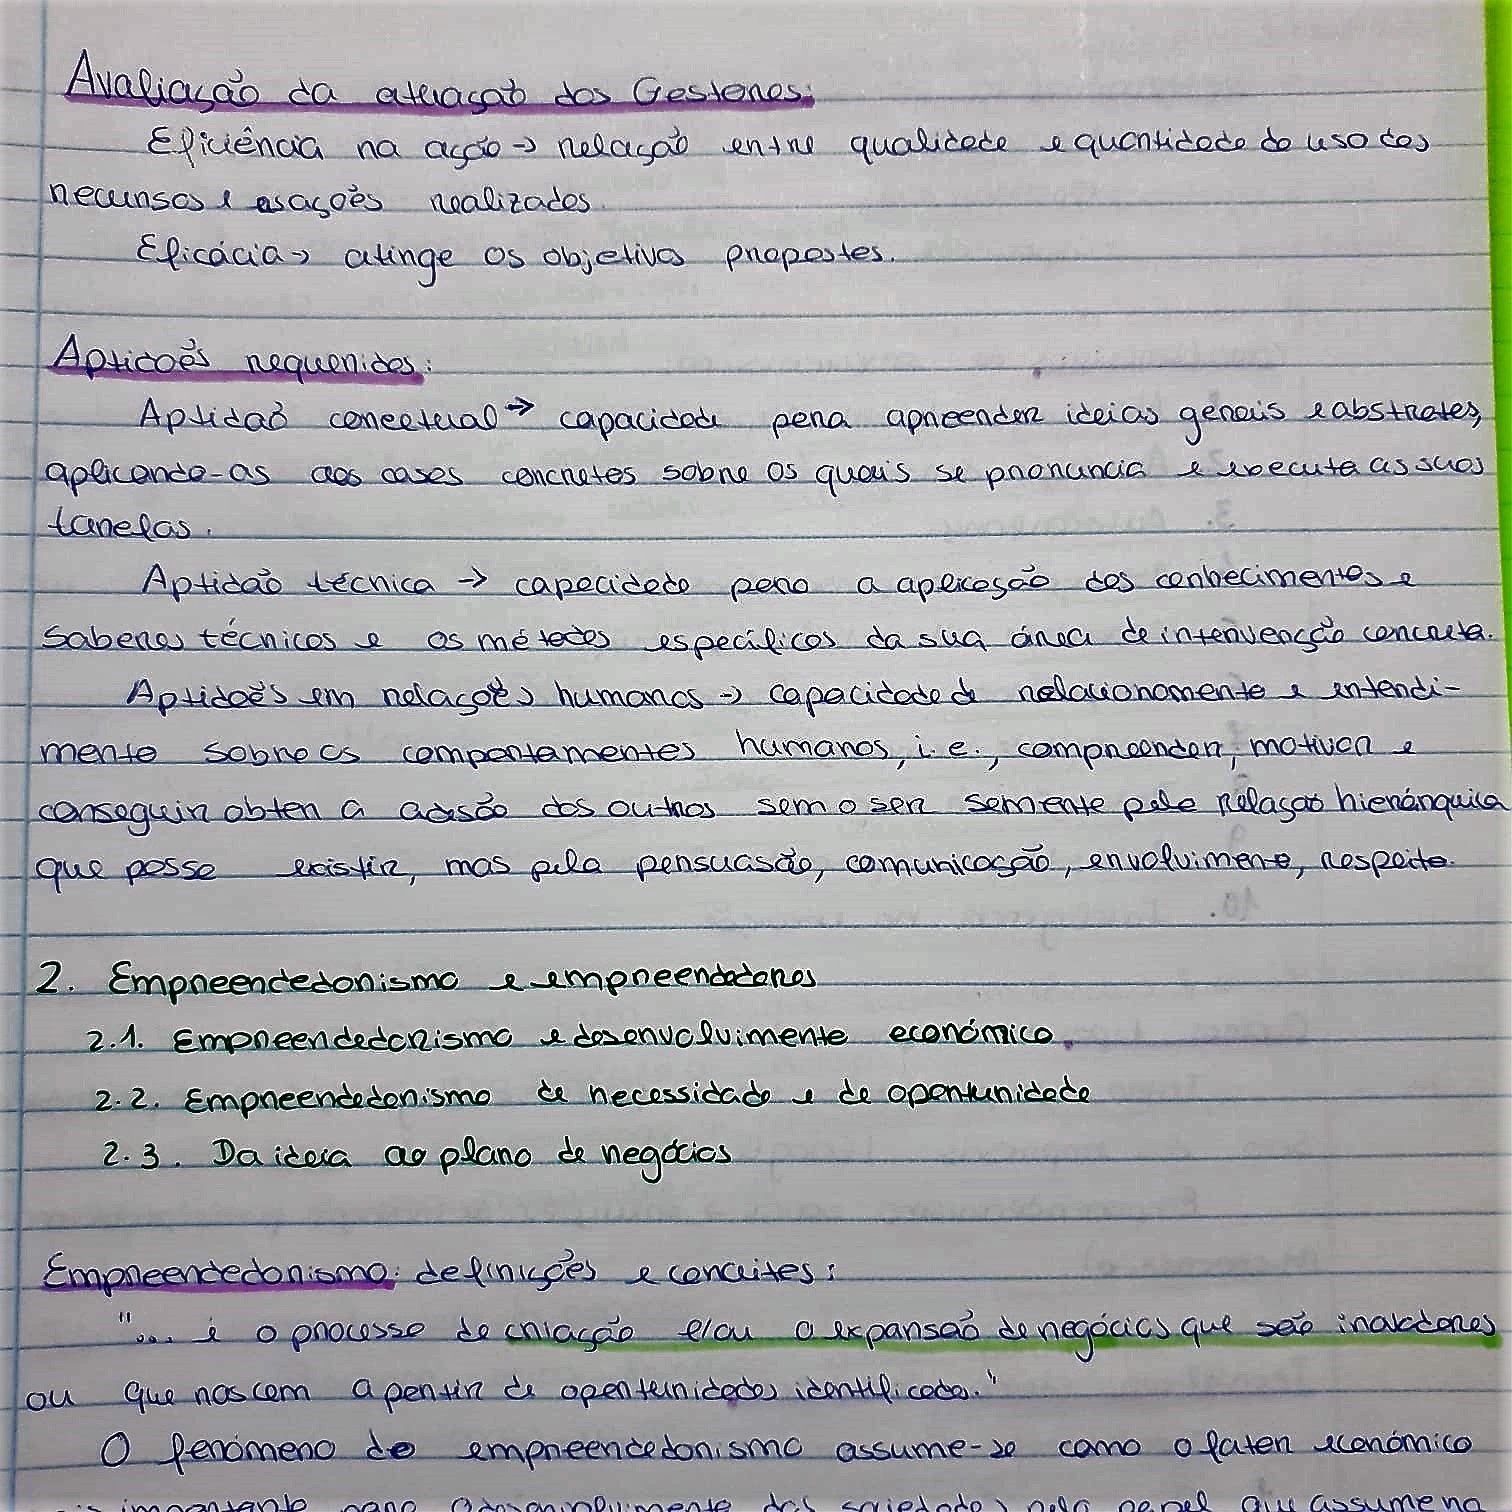 Avaliação da atuação dos Gestores:
Eficiência na ação → relação entre qualidade e quantidade do uso dos
recursos e as ações realizadas
Eficácia → atinge os objetivos propostos.
Aptidões requeridas:
Aptidão concetual → capacidade para apreender ideias gerais e abstratas,
aplicando-as aos casos concretos sobre os quais se pronuncia e executa as suas
tarefas.
Aptidão técnica → capacidade para a aplicação dos conhecimentos e
saberes técnicos e os métodos específicos da sua área de intervenção concreta.
Aptidões em relações humanas → capacidade de relacionamento e entendi-
mento sobre os comportamentos humanos, i.e., compreender, motivar e
conseguir obter a adesão dos outros sem o ser somente pela relação hierárquica
que possa existir, mas pela persuasão, comunicação, envolvimento, respeito.
2. Empreendedorismo e empreendedores
2.1. Empreendedorismo e desenvolvimento económico.
2.2. Empreendedorismo de necessidade e de oportunidade
2.3. Da ideia ao plano de negócios
Empreendedorismo: definições e conceitos:
"... é o processo de criação e/ou a expansão de negócios que são inovadores
ou que nascem a partir de oportunidades identificadas."
O fenómeno do empreendedorismo assume-se como o fator económico
importante para o desenvolvimento das sociedades, pelo papel que assume na